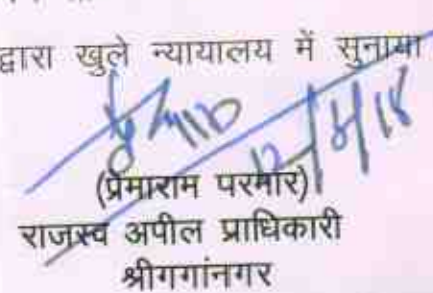 द्वारा खुले न्यायालय में सुनाया
(प्रेमाराम परमार)
राजस्व अपील प्राधिकारी
श्रीगगांनगर